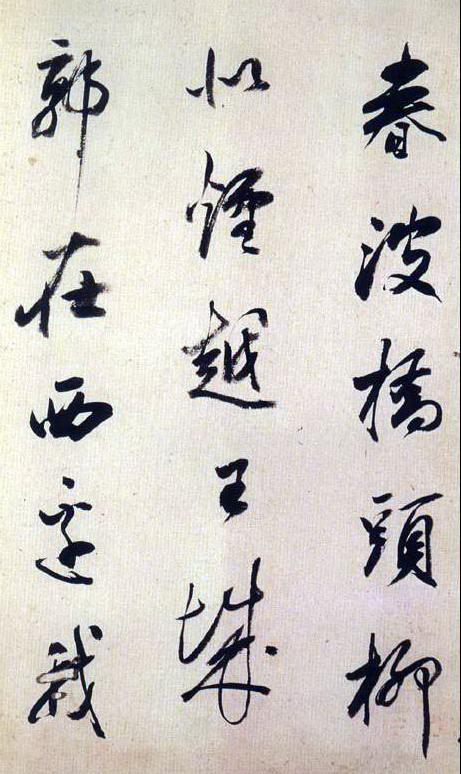 春波橋頭柳
似煙越王城
郭在西邊我